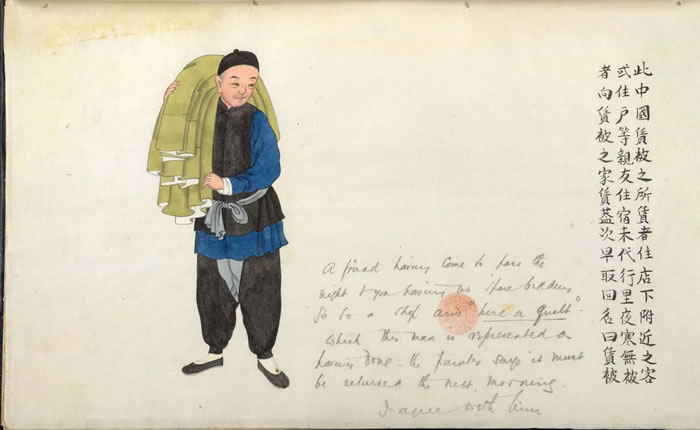 此中國賃被之所賃者住店下附近之客
或住戶等親友住宿未代行里夜寒無被
者向賃被之家賃蓋次早取回名曰賃被
A friend having come to pass the
night & you having no spare bedding
Go to a shop and "hire a quilt"
which this man is represented as
having done. The painter says it must
be returned the next morning.
I agree with him